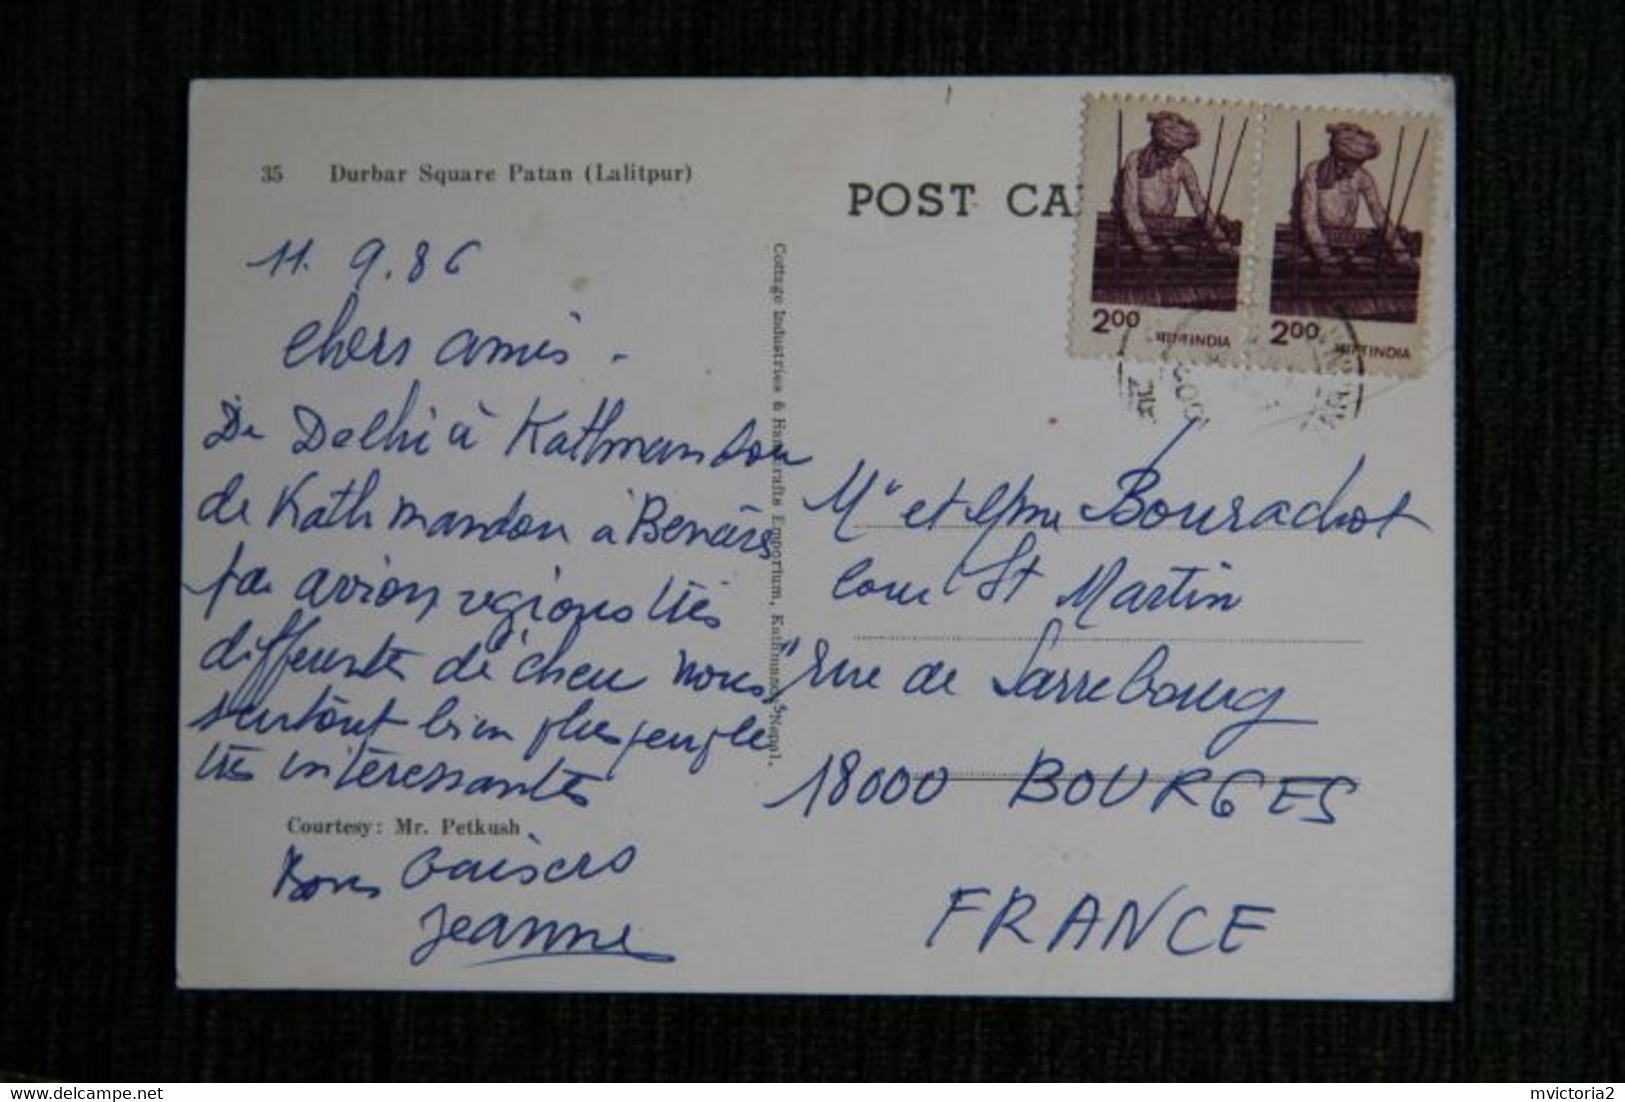 35 Durbar Square Patan (Lalitpur)
11.9.86
Chers amis -
De Delhi à Kathmandou
de Kathmandou à Benarès
par avion régions très
différentes de chez nous
surtout bien plus peuplé
très intéressantes
Courtesy: Mr. Petkush
Bons baisers
Jeanne
Cottage Industries & Handicrafts Emporium, Kathmandu, Nepal.
POST CA
2.00
भारत INDIA
2.00
भारत INDIA
Mr et Mme Bourachot
Cour St Martin
rue de Sarrebourg
18000 BOURGES
FRANCE
www.delcampe.net
mvictoria2